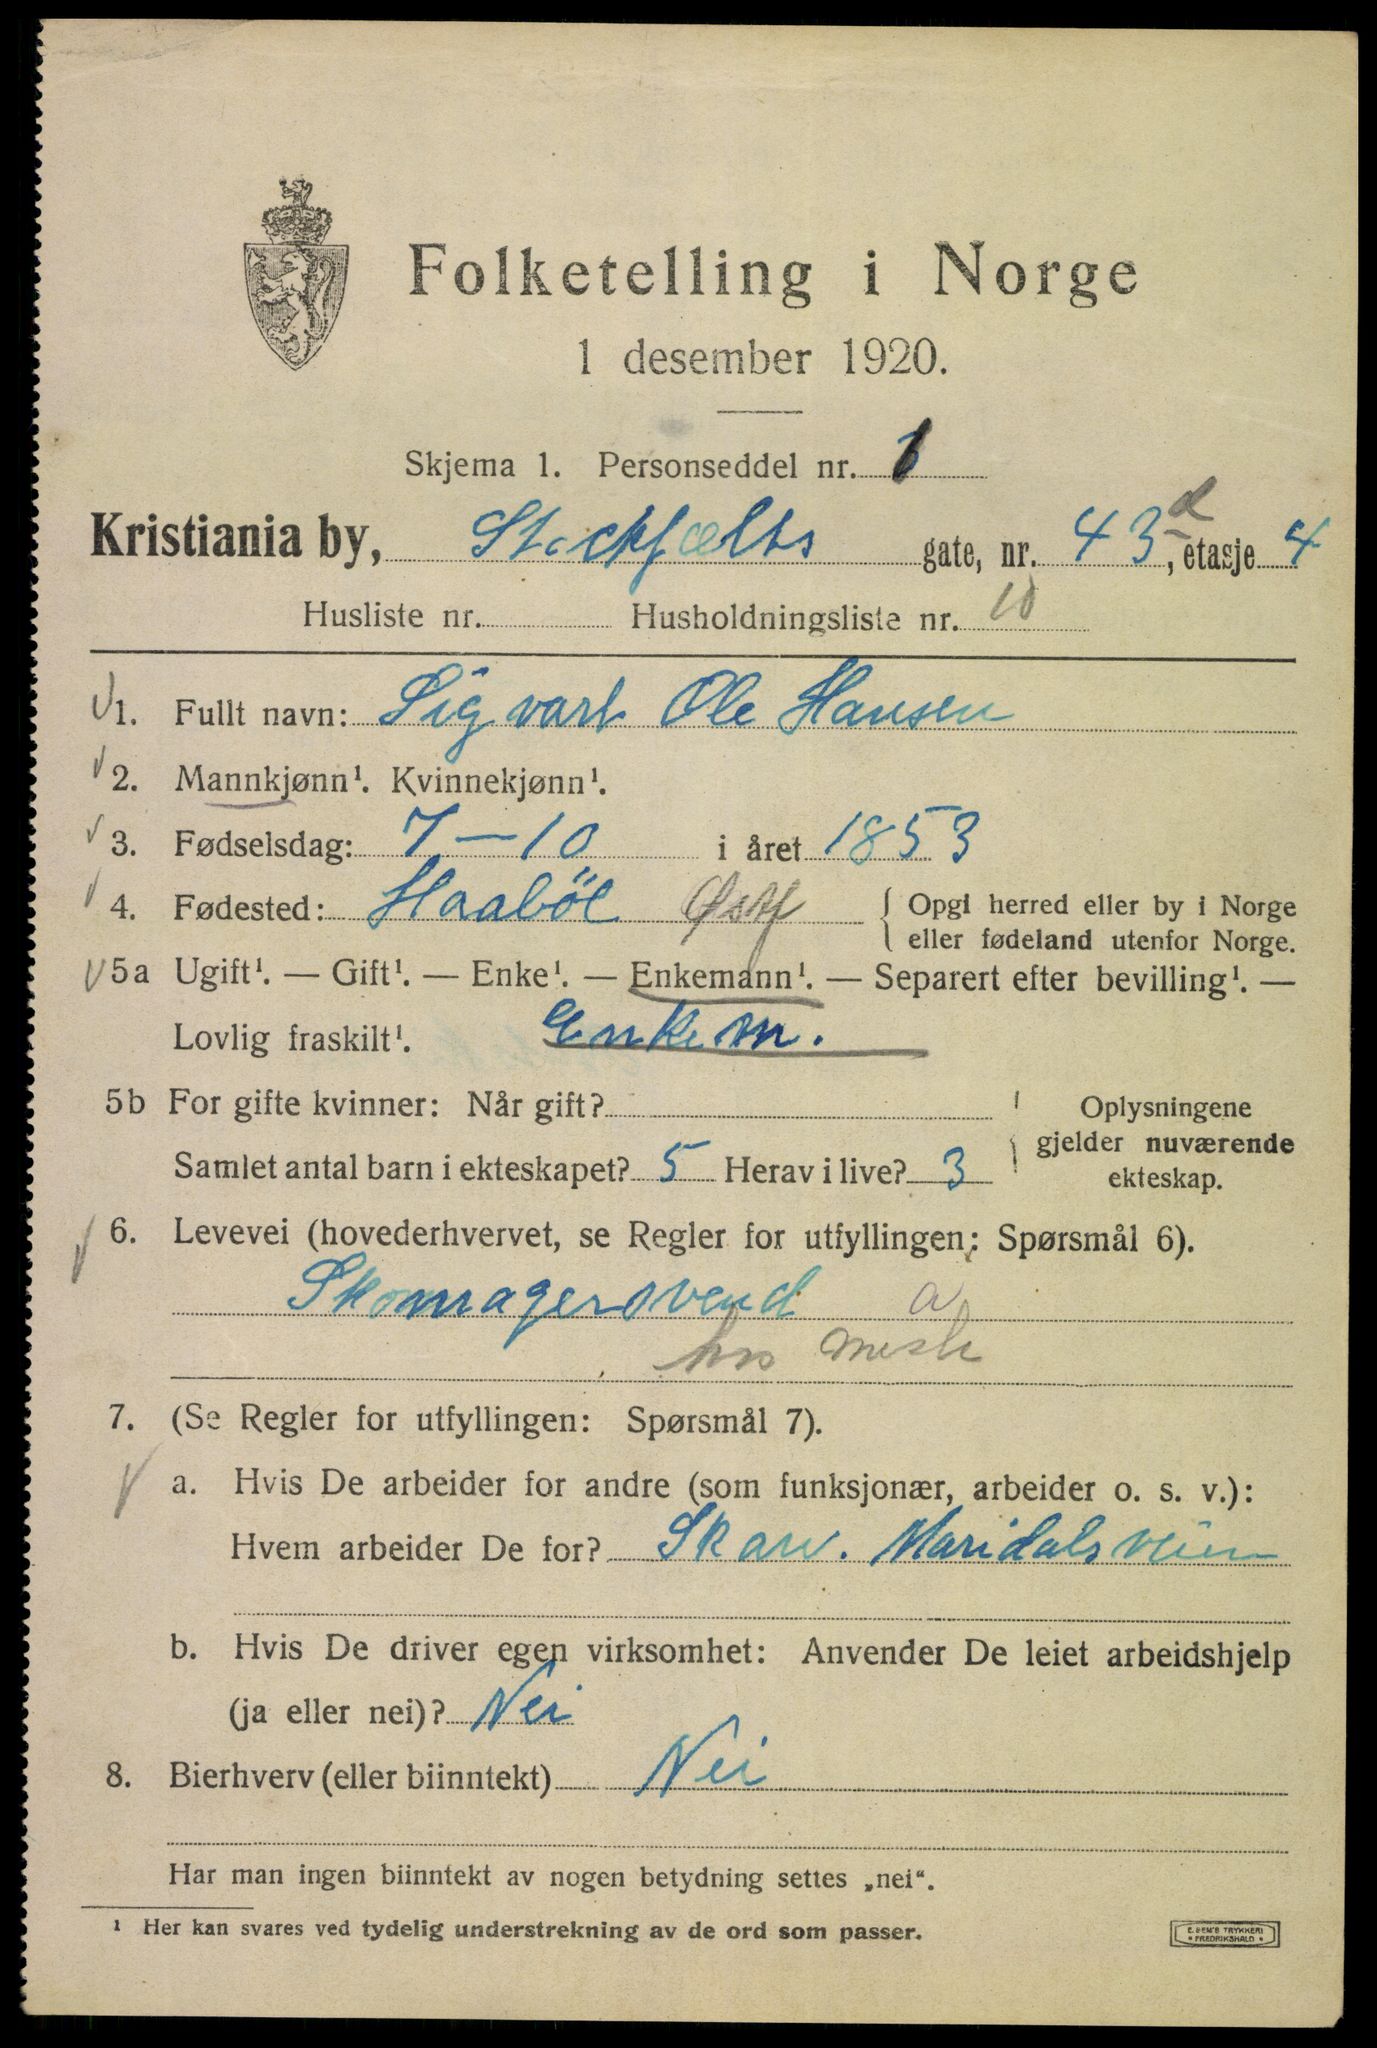 Folketelling i Norge
1 desember 1920.
Skjema 1. Personseddel nr. 1
Kristiania by, Stockfælts gate, nr. 43 d, etasje 4
Husliste nr. Husholdningsliste nr. 10
1. Fullt navn: Sigvart Ole Hansen
2. Mannkjønn¹. Kvinnekjønn¹.
3. Fødselsdag: 7-10 i året 1853
4. Fødested: Haaböl Østf { Opgi herred eller by i Norge
eller fødeland utenfor Norge.
5a Ugift¹. — Gift¹. — Enke¹. — Enkemann¹. — Separert efter bevilling¹. —
Lovlig fraskilt¹. Enkem.
5b For gifte kvinner: Når gift? Oplysningene
gjelder nuværende
Samlet antal barn i ekteskapet? 5 Herav i live? 3 ekteskap.
6. Levevei (hovederhvervet, se Regler for utfyllingen: Spørsmål 6).
Skomagersvend a
hos mest
7. (Se Regler for utfyllingen: Spørsmål 7).
a. Hvis De arbeider for andre (som funksjonær, arbeider o. s. v.):
Hvem arbeider De for? Skarv. Maridalsveien
b. Hvis De driver egen virksomhet: Anvender De leiet arbeidshjelp
(ja eller nei)? Nei
8. Bierhverv (eller biinntekt) Nei
Har man ingen biinntekt av nogen betydning settes „nei“.
¹ Her kan svares ved tydelig understrekning av de ord som passer.
E. SEM'S TRYKKERI
FREDRIKSHALD